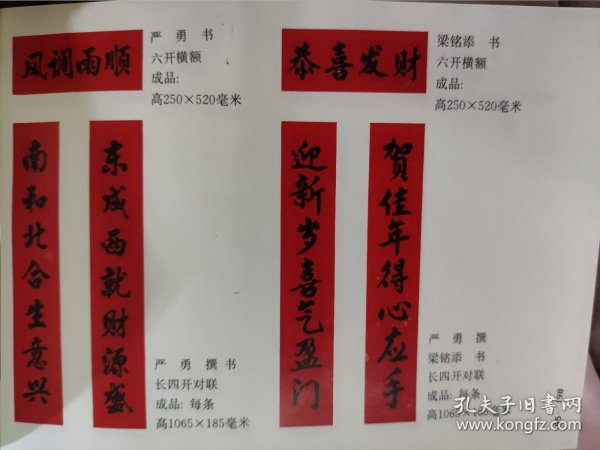 风调雨顺
严 勇 书
六开横额
成品:
高250×520毫米
恭喜发财
梁铭添 书
六开横额
成品:
高250×520毫米
东成西就财源盛
南和北合生意兴
严 勇 撰 书
长四开对联
成品: 每条
高1065×185毫米
贺佳年得心应手
迎新岁喜气盈门
严 勇 撰
梁铭添 书
长四开对联
成品: 每条
高1065×185毫米
孔夫子旧书网
www.kongfz.com